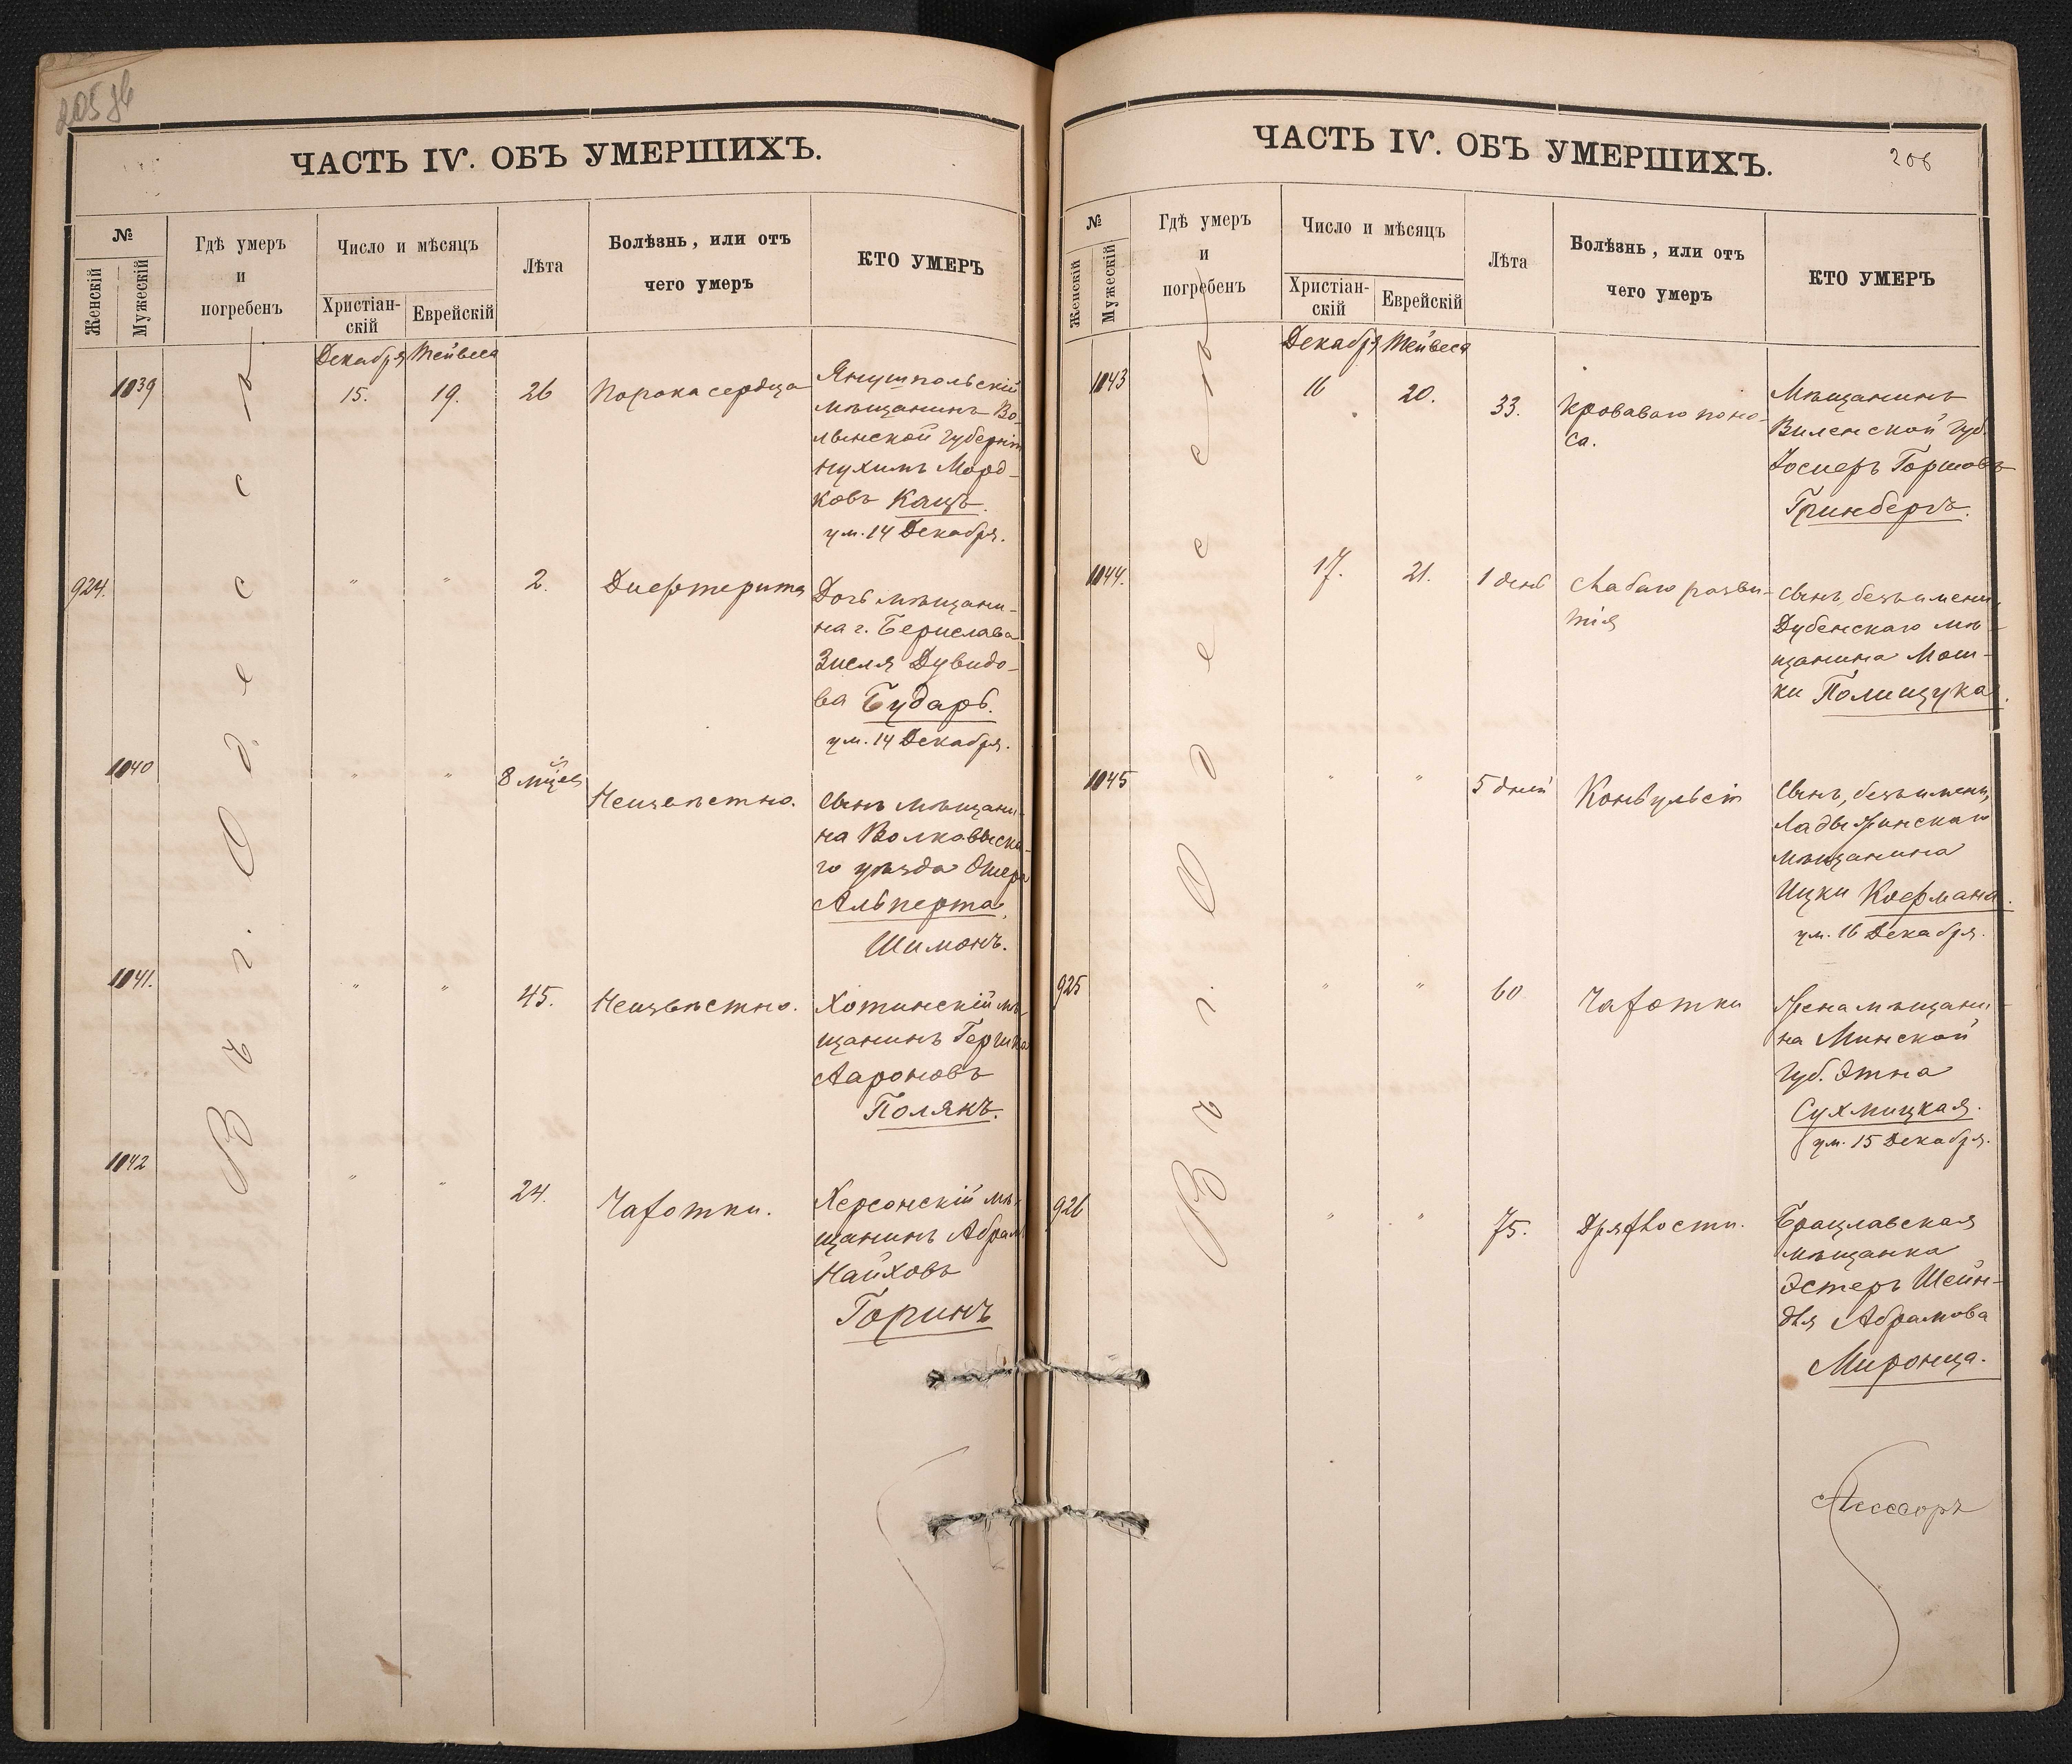 205 об
ЧАСТЬ IV. ОБЪ УМЕРШИХЪ.
№
Женскій
Мужескій
Гдѣ умеръ
и
погребенъ
Число и мѣсяцъ
Христіан-
скій
Еврейскій
Лѣта
Болѣзнь, или отъ
чего умеръ
КТО УМЕРЪ
Въ г. Одессѣ
Декабря Тейвеса
1039 15. 19. 26 Порока сердца
Янушпольскій
мѣщанинъ Во-
лынской губерніи
Нухимъ Морд-
ковъ Кацъ.
ум. 14 Декабря.
924. " " 2. Дифтерита
Дочь мѣщани-
на г. Берислава
Зисля Дувидо-
ва Бударь.
ум. 14 Декабря.
1040 " " 8 м-цев Неизвѣстно.
Сынъ мѣщани-
на Волковыска-
го уѣзда Ошера
Альперта,
Шимонъ.
1041. " " 45. Неизвѣстно.
Хотинскій мѣ-
щанинъ Гершка
Аароновъ
Полякъ.
1042 " " 24. Чахотки.
Херсонскій мѣ-
щанинъ Абрам
Найховъ
Горинъ
ЧАСТЬ IV. ОБЪ УМЕРШИХЪ.
206
№
Женскій
Мужескій
Гдѣ умеръ
и
погребенъ
Число и мѣсяцъ
Христіан-
скій
Еврейскій
Лѣта
Болѣзнь, или отъ
чего умеръ
КТО УМЕРЪ
Въ г. Одессѣ
Декабря Тейвеса
1043 16 20. 33. Кроваваго поно-
са.
Мѣщанинъ
Виленской губ.
Іосперъ Горшовъ
Гринбергъ.
1044. 17. 21. 1 день Слабаго разви-
тія
Сынъ, безъ имени,
Дубенскаго мѣ-
щанина Мош-
ки Полищука.
1045 " " 5 дней Конвульсіи
Сынъ, безъ имени,
Ладыжинскаго
мѣщанина
Ицки Кофмана.
ум. 16 Декабря.
925 " " 60 Чахотки
Жена мѣщани-
на Минской
губ. Этна
Сухмицкая.
ум. 15 Декабря.
926 " " 75. Дряхлости.
Брацлавская
мѣщанка
Эстеръ Шейн-
для Абрамова
Миронца.